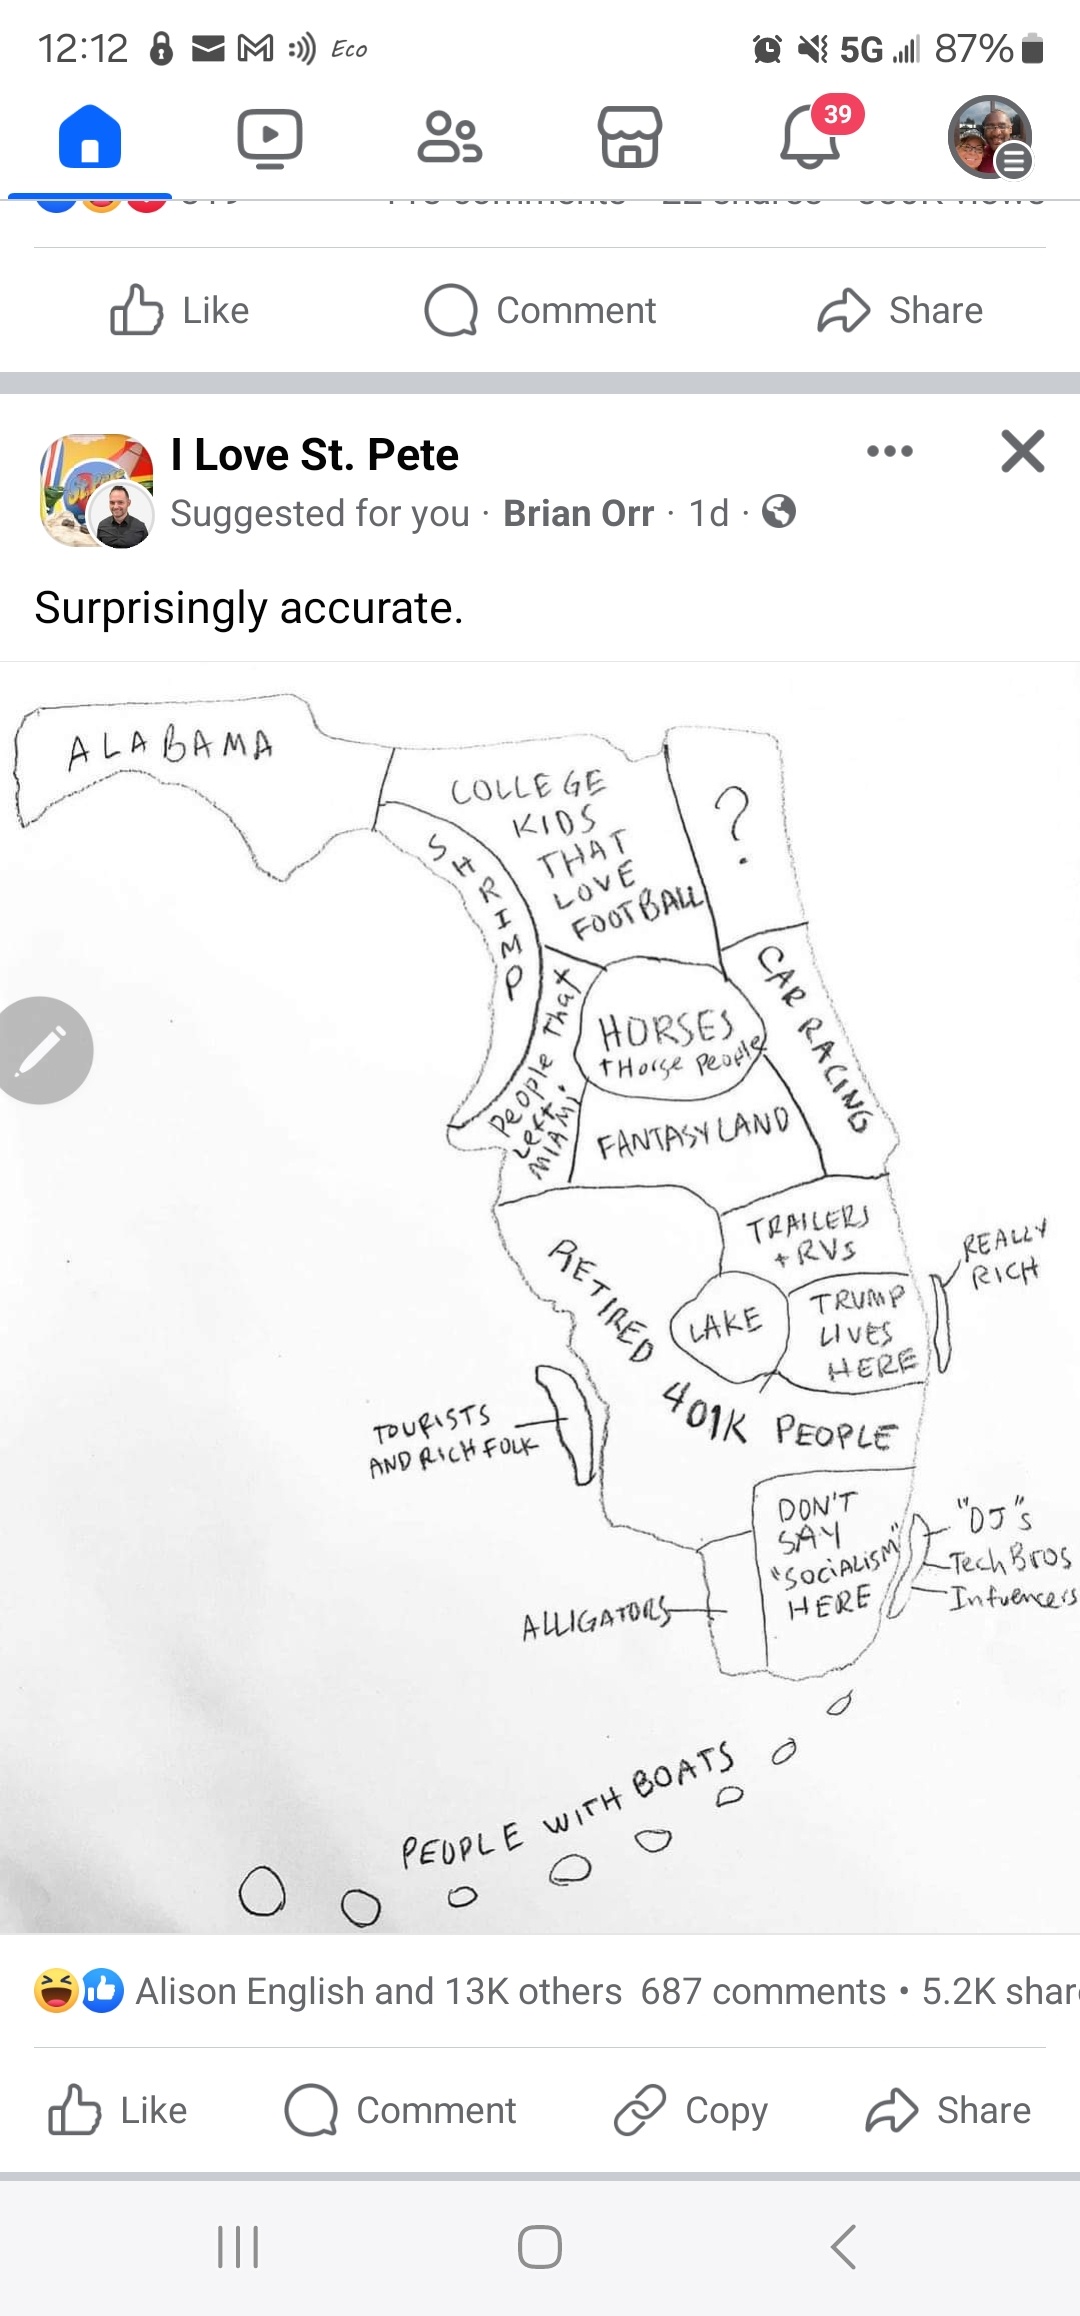 12:12 Eco 5G 87%
39
Like Comment Share
I Love St. Pete
Suggested for you · Brian Orr · 1d ·
Surprisingly accurate.
ALABAMA
COLLEGE
KIDS
THAT
LOVE
FOOTBALL
?
SHRIMP
CAR RACING
People That
Left
MIAMI
HORSES
+ Horse People
FANTASYLAND
TRAILERS
+ RVs
REALLY
RICH
RETIRED
LAKE
TRUMP
LIVES
HERE
401K PEOPLE
TOURISTS
AND RICH FOLK
DON'T
SAY
"SOCIALISM"
HERE
"DJ"s
Tech Bros
Infuencers
ALLIGATORS
PEOPLE WITH BOATS
Alison English and 13K others 687 comments • 5.2K shar
Like Comment Copy Share